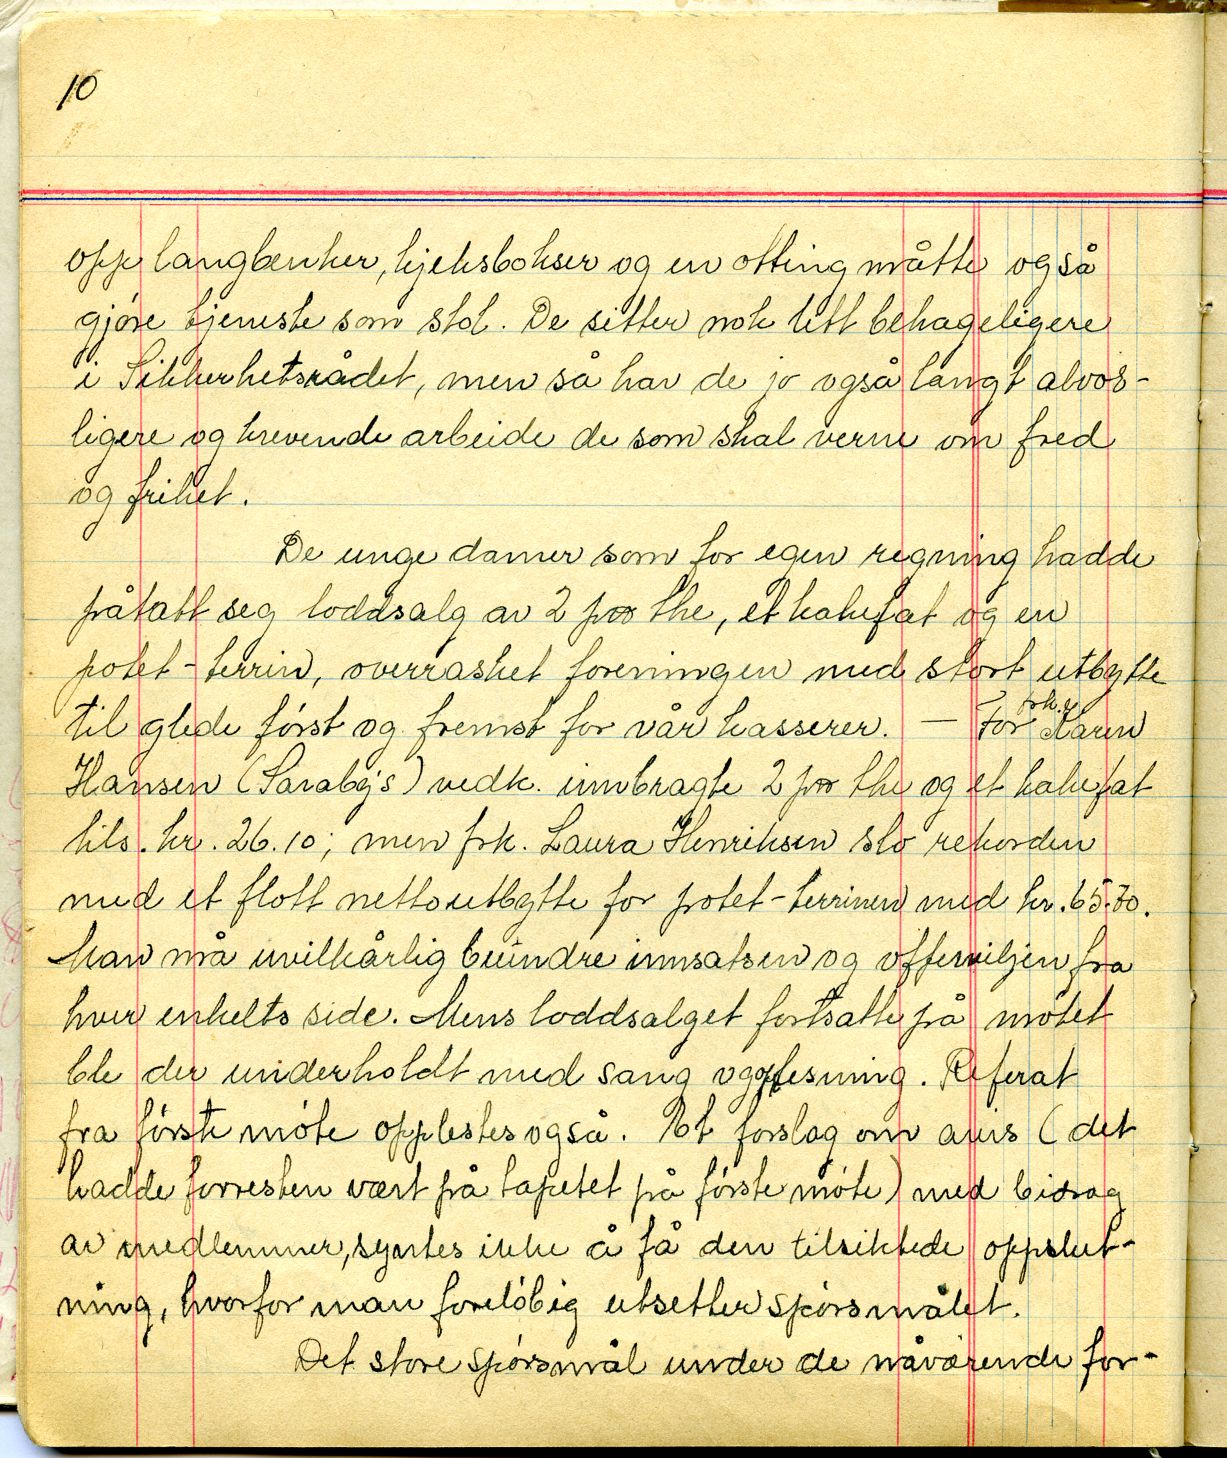 10
opp langbenker, kjeksbokser og en otting måtte også
gjøre tjeneste som stol. De sitter nok litt behageligere
i Sikkerhetsrådet, men så har de jo også langt alvor-
ligere og krevende arbeide de som skal verne om fred
og frihet.
De unge damer som for egen regning hadde
påtatt seg loddsalg av 2 pr the, et kakefat og en
potet-terrin, overrasket foreningen med stort utbytte
til glede først og fremst for vår kasserer. — For frk. Karen
Hansen (Saraby's) vedk. innbragte 2 pr the og et kakefat
tils. kr. 26.10; men frk. Laura Henriksen slo rekorden
med et flott nettoutbytte for potet-terrinen med kr. 65.70.
Man må uvilkårlig beundre innsatsen og offerviljen fra
hver enkelts side. Mens loddsalget fortsatte på møtet
ble der underholdt med sang og oplesning. Referat
fra første møte opplestes også. Et forslag om avis (det
hadde forresten vært på tapetet på første møte) med bidrag
av medlemmer, syntes ikke å få den tilsiktede oppslut-
ning, hvorfor man foreløbig utsetter spørsmålet.
Det store spørsmål under de nåværende for-